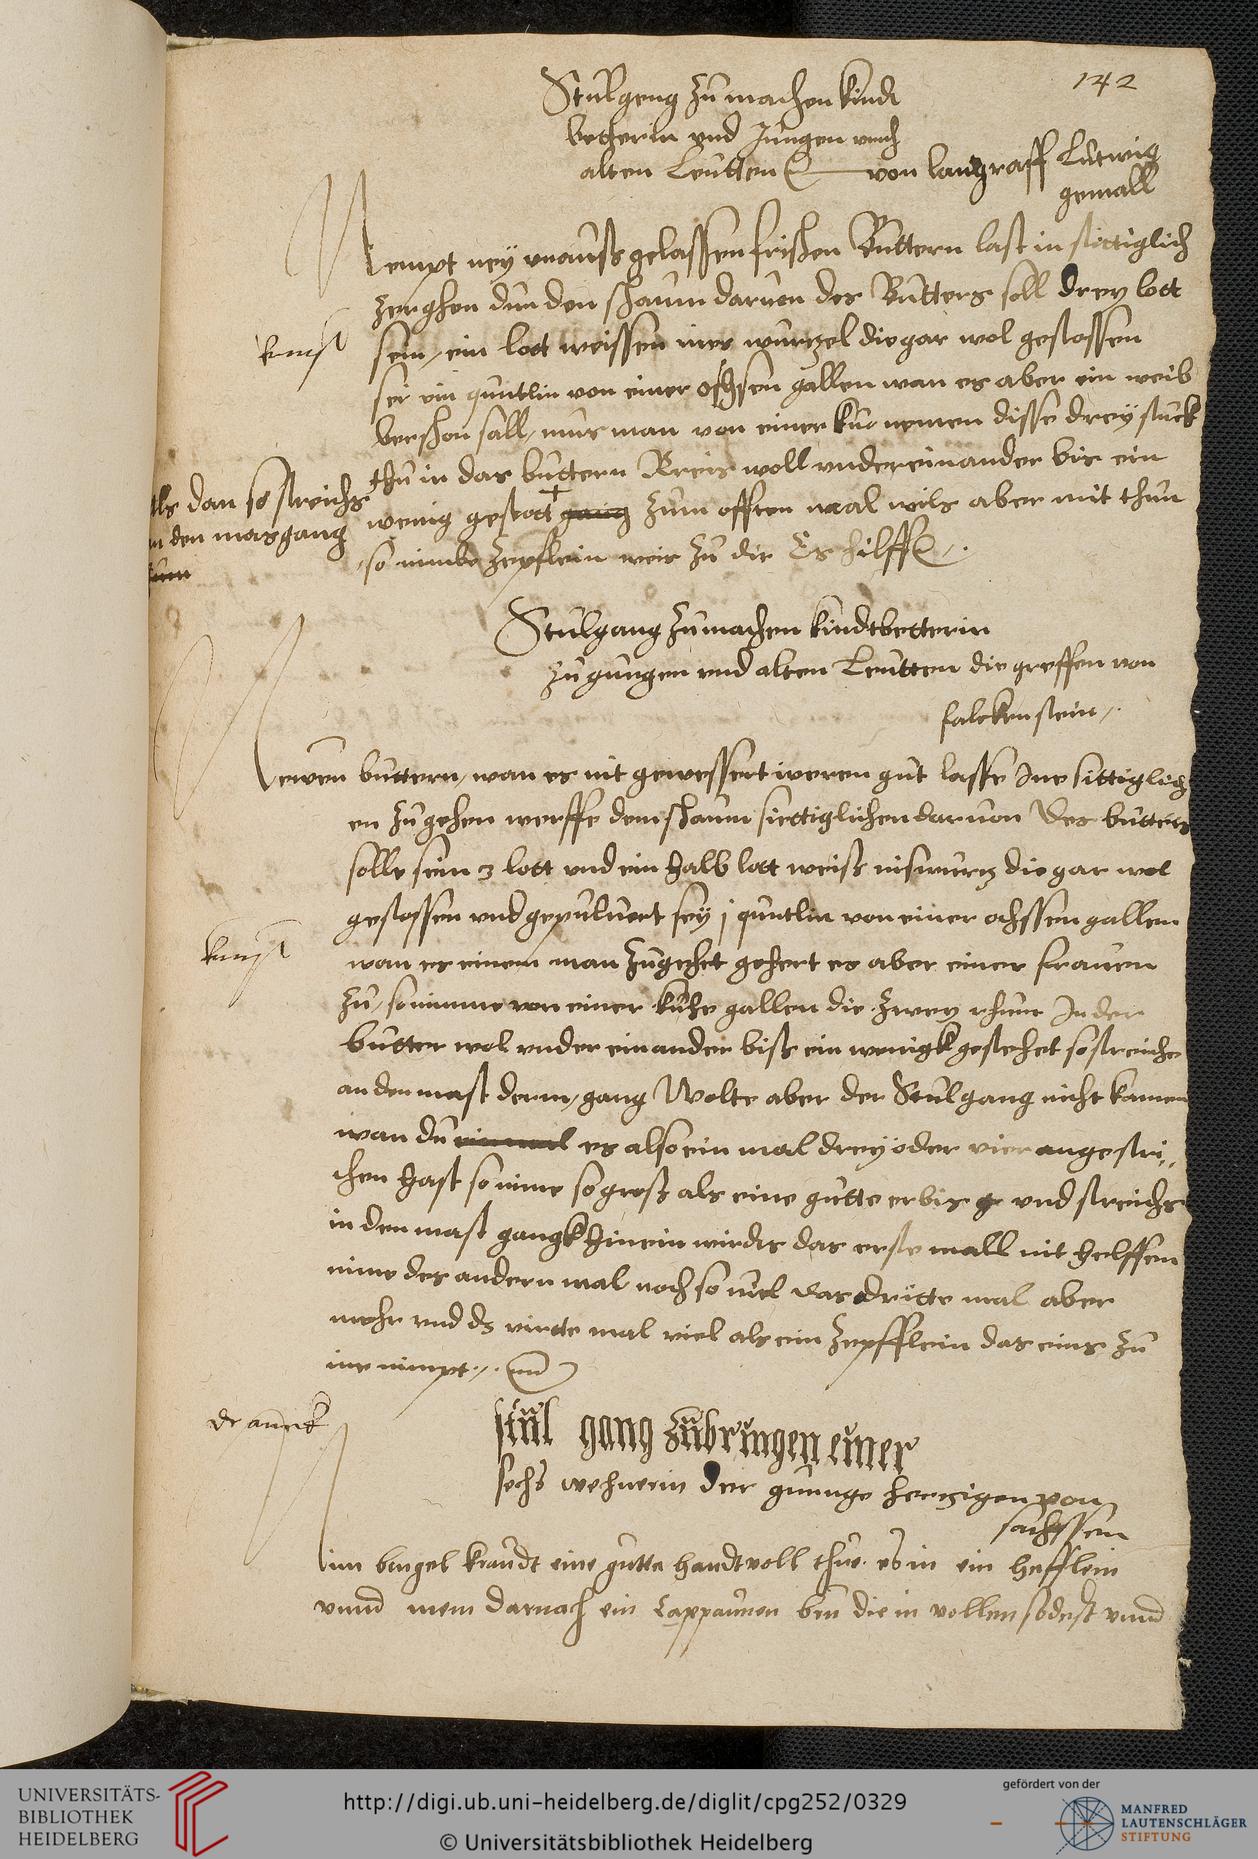 142
Stulgeng zu machen kindt
betherin vnd Jungen vnd
alten Leutten von langraff Ludwig
gemall
Nempt ney vnauß gelassen frischen Buttern last in sittiglich
zerghen dun den schaum daruon des Butters soll drey lott
kunst
sein, ein lott weissen nies wurtzel die gar wol gestossen
sei ein quntlin von einer ochsen gallen wan es aber ein weib
bershon sall, mus man von einer kue nemen disse drey stuck
thu in das buttern Kreis woll vndereinander bis ein
wenig gestett gang zum offten mal wils aber nit thun
so nimbe zepflein weis zu dir Es hilfft
dan so streichs
den masgang
Stulgang zumachen kindtbetterin
zu gungen vnd alten Leutten die greffen von
falckenstein
Newen buttern, wan es nit gewessert weren gut lasse Ine sittiglich
en zu gehen werffe dem schaum sittiglichen daruon des butters
solle sein 3 lott vnd ein halb lott weiß niswurtz die gar wol
gestossen vnd gepuluert sey j quntlin von einer ochssen gallen
kunst
wan es einem man zugehet gehert es aber einer frauen
zu, so nimme von einer kuhe gallen die zwey thun In der
butter wol vnder einander biß ein wenigk gestehet so streiche
an den mast derm, gang Wolte aber der Stulgang nicht kamen
wan du ein mal es also ein mal drey oder vier angestri,,
chen hast so nime so groß als eine gutte erbis gr vnd streichs
in den mast gangk hinein wirdts das erste mall nit helffen
nime des andern mal noch so viel das dritte mal aber
mehr vnd ds virtte mal viel als ein zepfflein das eins zu
ime nimpt
stul gang zubringen einer
sechs wehnerin der gunnge hertzigen von
sachssen
Nim bingel kraudt eine gutte handt voll thue es in ein hefflein
vnnd nem darnach ein Cappaunen ben die in vollen sodest vnnd
UNIVERSITÄTS-
BIBLIOTHEK
HEIDELBERG
http://digi.ub.uni-heidelberg.de/diglit/cpg252/0329
© Universitätsbibliothek Heidelberg
gefördert von der
MANFRED
LAUTENSCHLÄGER
STIFTUNG